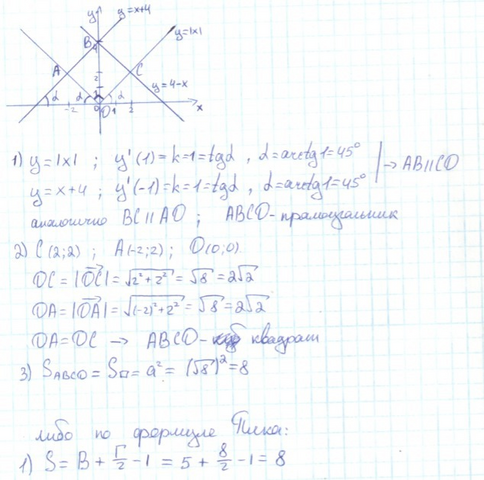 y
y=x+4
y=|x|
B
4
A
2
C
y=4-x
α
α
α
-2
0
O
1
2
x
1) y=|x| ; y'(1)=k=1=tgα , α=arctg1=45° | → AB||CO
y=x+4 ; y'(-1)=k=1=tgα , α=arctg1=45°
аналогично BC||AO ; ABCO-прямоугольник
2) C(2;2) ; A(-2;2) ; O(0;0)
OC=|OC|=√2²+2²=√8=2√2
OA=|OA|=√(-2)²+2²=√8=2√2
OA=OC → ABCO- квадрат
3) SABCO=S□=a²=(√8)²=8
либо по формуле Пика:
1) S=B+Г/2-1=5+8/2-1=8